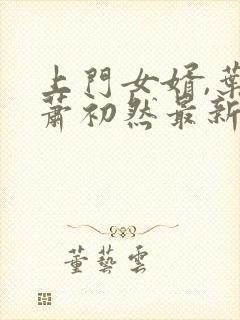 上門女婿,葉
蕭初然最新
董藝雲